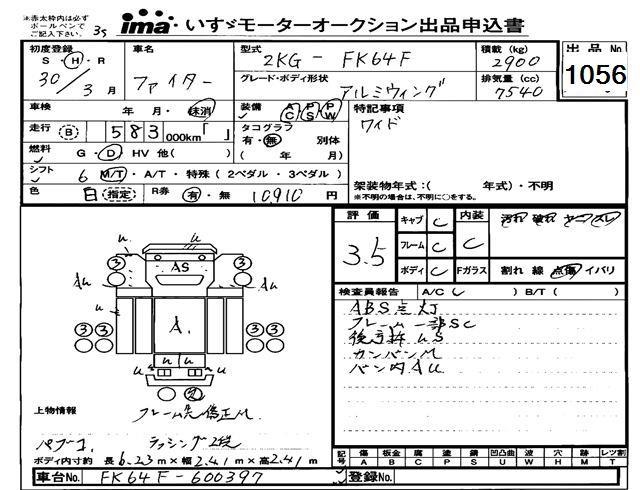 ※赤太枠内は必ず
ボールペンで
ご記入下さい。
35
ima いすゞモーターオークション出品申込書
初度登録 S・H・R 30/3月
車名 ファイター
型式 2KG-FK64F
積載(kg) 2900
出品No. 1056
グレード・ボディ形状 アルミウィング
排気量(cc) 7540
車検 年 月・抹消
装備 AC PS PW
特記事項
ワイド
走行 B 583 000km「 」
タコグラフ 有・無 別体 ( 年 月)
燃料 G・D・HV 他( )
シフト 6 M/T・A/T・特殊(2ペダル・3ペダル)
架装物年式:( 年式)・不明
※不明の場合は、不明に○をする。
色 白 指定
R券 有・無 10,910 円
評価 3.5
キャブ C
フレーム C
ボディ C
内装 C
汚れ 破れ ヤニ スレ
Fガラス 割れ 線 点傷 イバリ
検査員報告 A/C( ) B/T( )
ABS点灯
フレーム一部SC
カンバンM
バン内AU
u u u
3 3
AS
Au Au
3 3 3 3
A
u u
u u
2
上物情報
パブコ
ラッシング2段
ボディ内寸約 長6.23m×幅2.41m×高2.41m
記号 傷A 板金B 腐C 塗P 錆S 凹凸曲U 波W 穴H 跡M レツ割T
車台No. FK64F-600397
登録No.